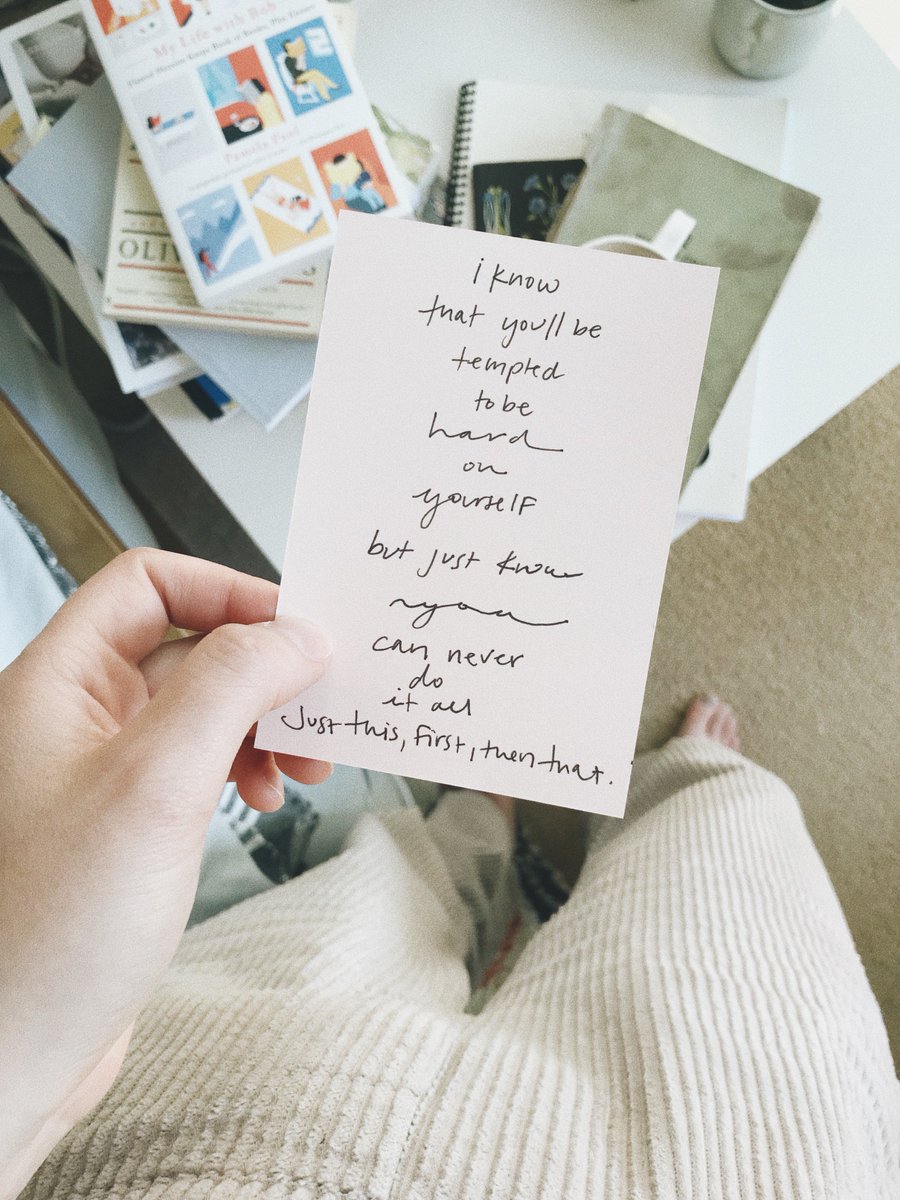 My Life with Bob
Pamela Paul
i know
that you'll be
tempted
to be
hard
on
yourself
but just know
you
can never
do
it all
Just this, first, then that.